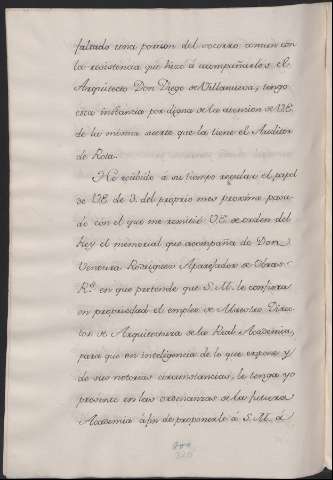 faltado una porcion del socorro comun con
la resistencia que hizo á acompañarlos el
Arquitecto Don Diego de Villanueva, tengo
esta instancia por digna de la atencion de V.E.
de la misma suerte que la tiene el Auditor
de Rota.
He recibido a su tiempo regular el papel
de V.E. de 3. del proprio mes proximo pasa-
do con el que me remitió V.E. de orden del
Rey el memorial que acompaña de Don
Ventura Rodriguez Aparejador de Obras
R.s en que pretende que S.M. le confiera
en propriedad el empleo de Maestro Direc-
tor de Arquitectura de la Real Academia,
para que en inteligencia de lo que expone y
de sus notorias circunstancias, le tenga yo
presente en las ordenanzas de la futura
Academia á fin de proponerle á S.M. á
326